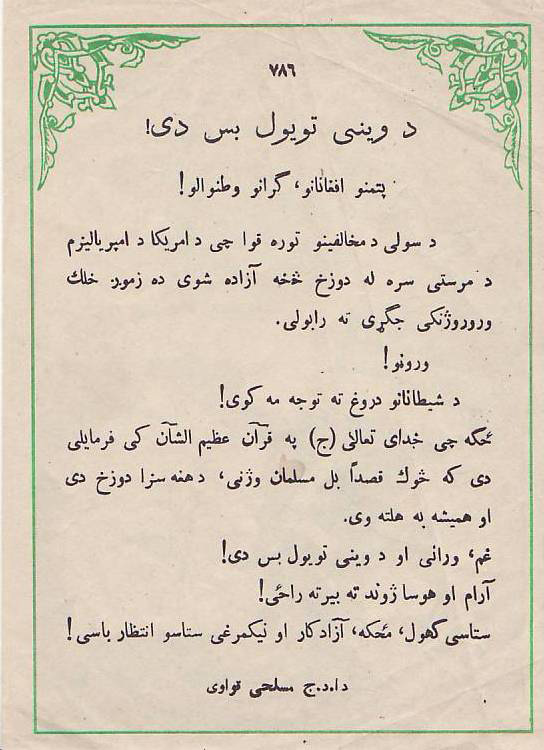 ۷۸۶
د وینی تویول بس دی!
پتمنو افغانانو، گرانو وطنوالو!
د سولی د مخالفینو توره قوا چی د امریکا د امپریالیزم
د مرستی سره له دوزخ څخه آزاده شوی ده زموږ خلك
وروروژنکی جگړی ته رابولی.
ورونو!
د شیطانانو دروغ ته توجه مه کوی!
ځکه چی خدای تعالیٰ (ج) په قرآن عظیم الشآن کی فرمایلی
دی که څوك قصداً بل مسلمان وژنی، دهغه سزا دوزخ دی
او همیشه به هلته وی.
غم، ورانی او د وینی تویول بس دی!
آرام او هوسا ژوند ته بیرته راځی!
ستاسی کهول، ځمکه، آزاد کار او نیکمرغی ستاسو انتظار باسی!
د ا.د.ج مسلحی قواوی